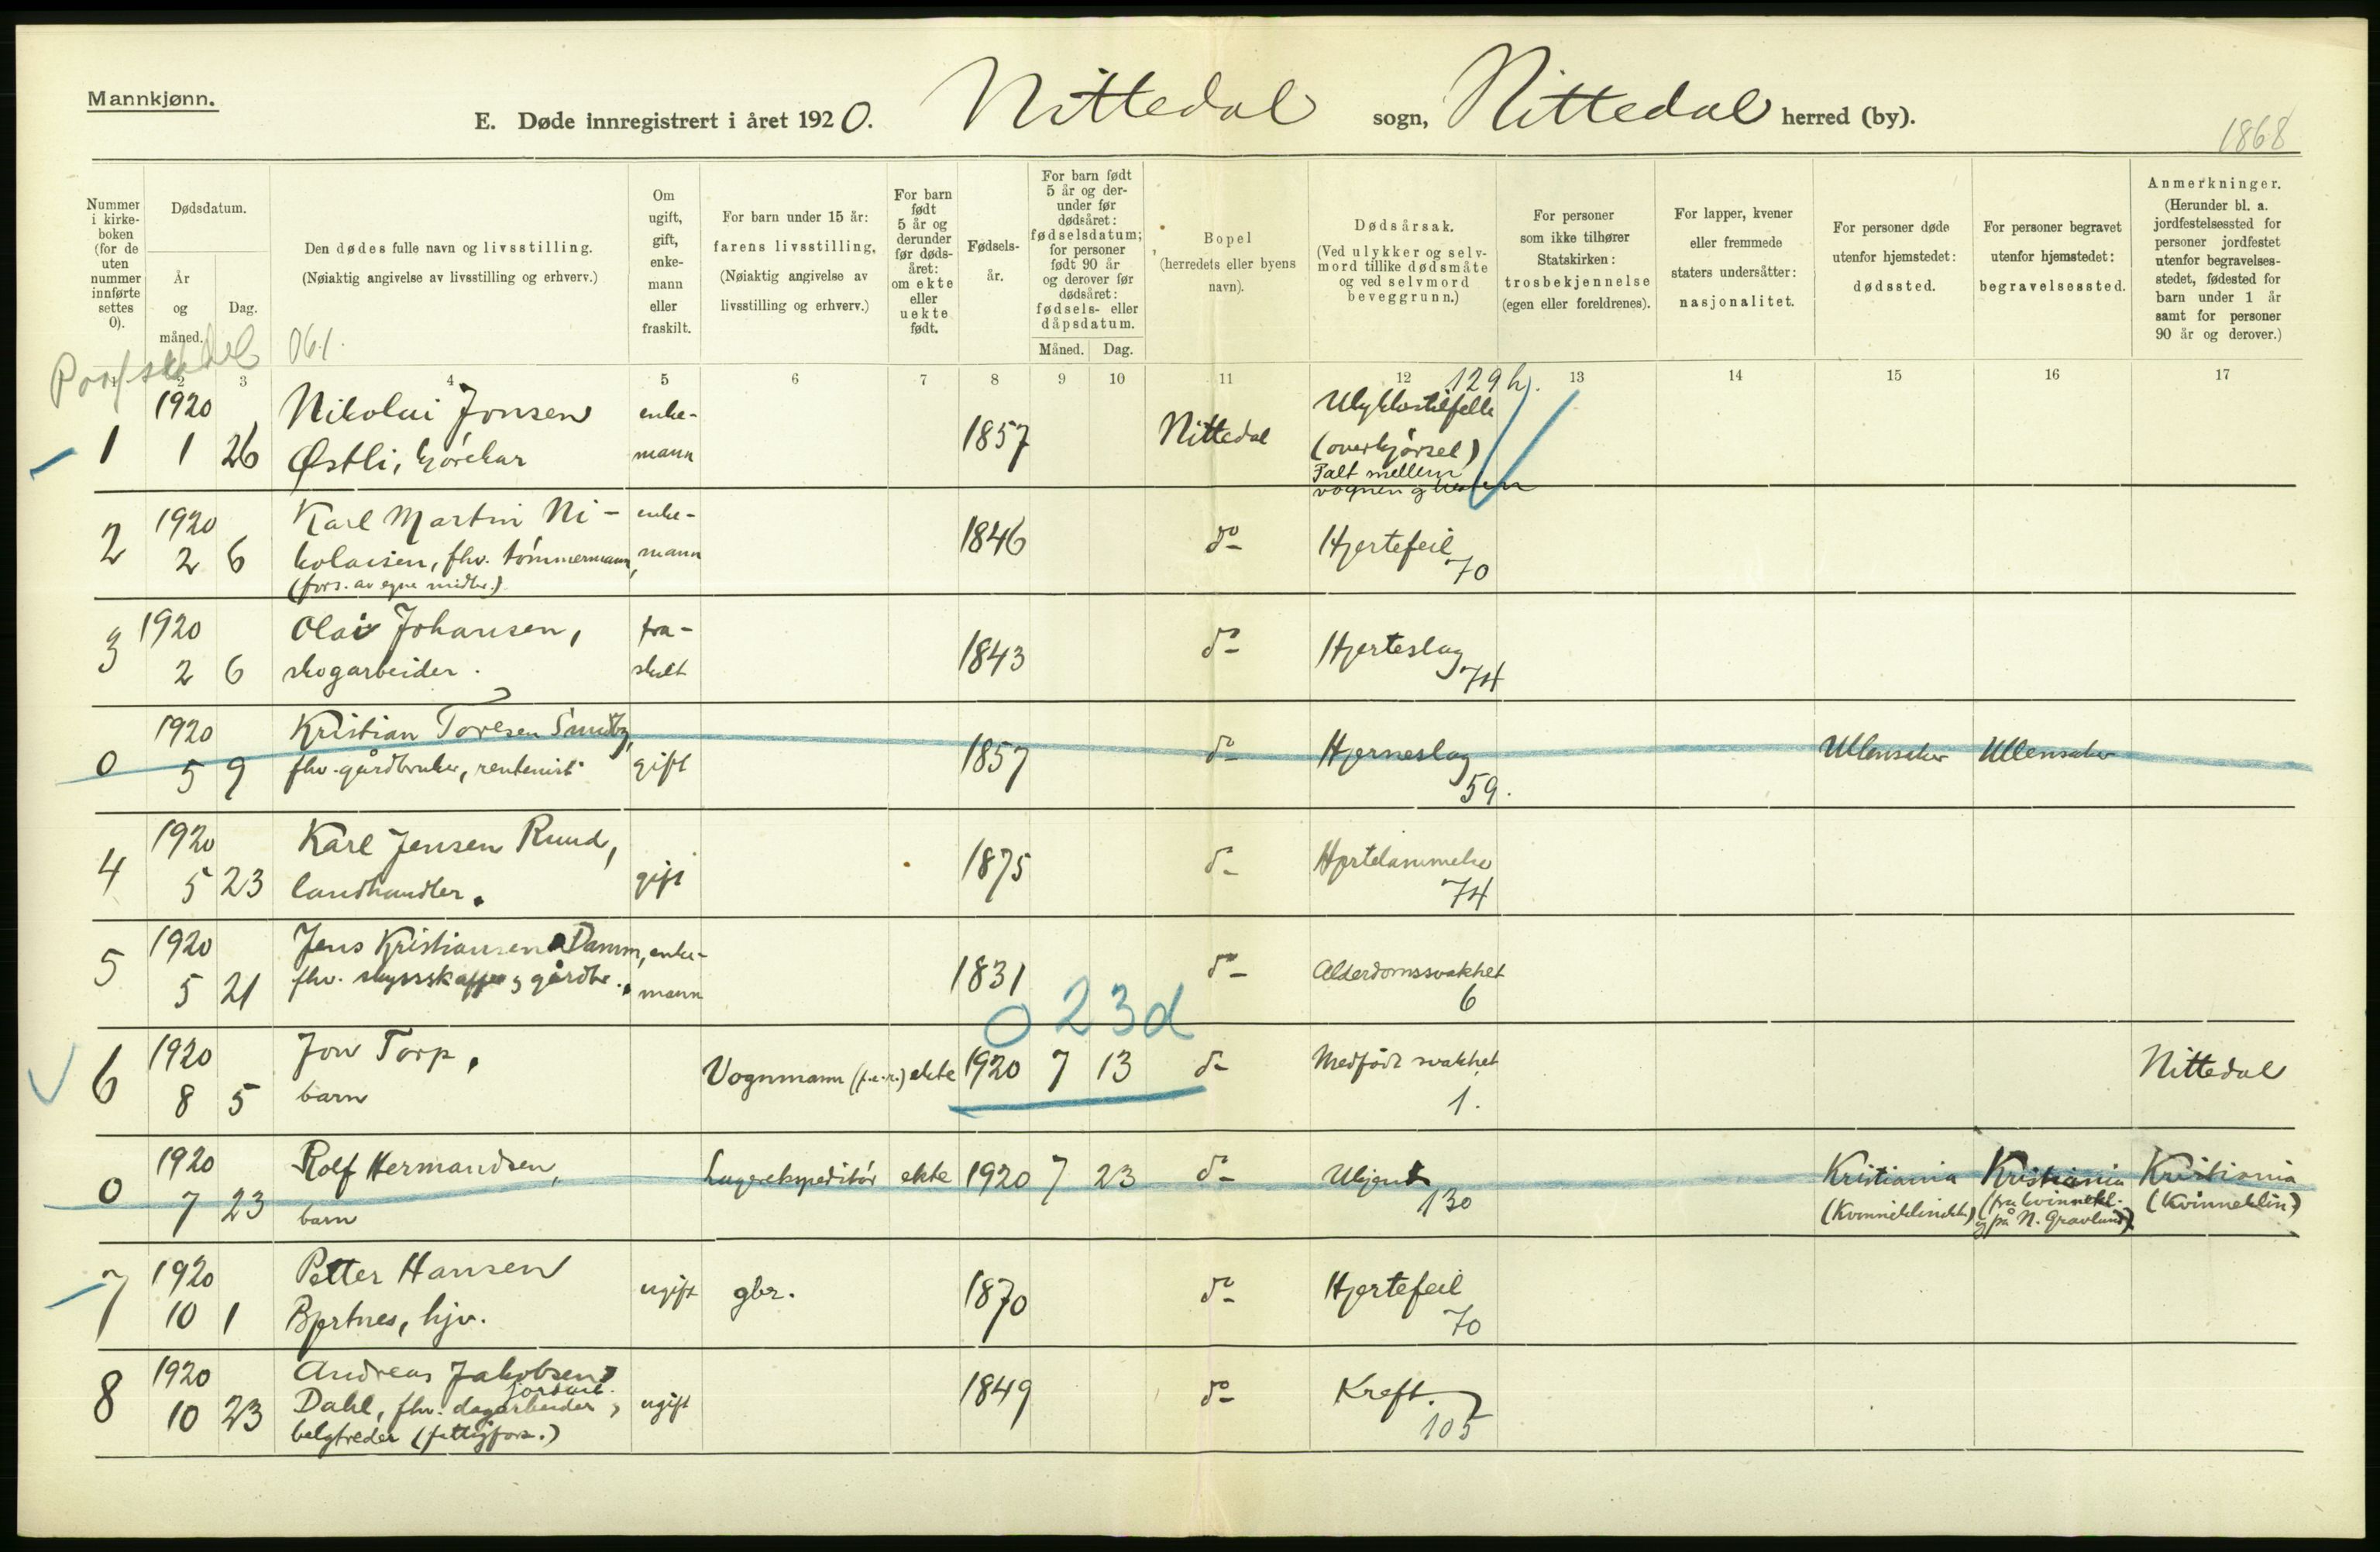 Mannkjønn.
E. Døde innregistrert i året 1920. Nittedal sogn, Nittedal herred (by).
1868
Nummer i kirke-boken (for de uten nummer innførte settes 0).
Dødsdatum.
År og måned.
Dag.
Den dødes fulle navn og livsstilling.
(Nøiaktig angivelse av livsstilling og erhverv.)
Om ugift, gift, enke-mann eller fraskilt.
For barn under 15 år: farens livsstilling,
(Nøiaktig angivelse av livsstilling og erhverv.)
For barn født 5 år og derunder før døds-året: om ekte eller uekte født.
Fødsels-år.
For barn født 5 år og der-under før dødsåret: fødselsdatum; for personer født 90 år og derover før dødsåret: fødsels- eller dåpsdatum.
Måned. Dag.
Bopel
(herredets eller byens navn).
Dødsårsak.
(Ved ulykker og selv-mord tillike dødsmåte og ved selvmord beveggrunn.)
For personer som ikke tilhører Statskirken: trosbekjennelse (egen eller foreldrenes).
For lapper, kvener eller fremmede staters undersåtter: nasjonalitet.
For personer døde utenfor hjemstedet: dødssted.
For personer begravet utenfor hjemstedet: begravelsessted.
Anmerkninger.
(Herunder bl. a. jordfestelsessted for personer jordfestet utenfor begravelses-stedet, fødested for barn under 1 år samt for personer 90 år og derover.)
061.
2 3 4 5 6 7 8 9 10 11 12 13 14 15 16 17
129 h).
1920 Nikolai Jonsen enke- Ulykkestilfelle
1 1 26 Østli, kjørekar mann 1857 Nittedal (overkjørsel)
Falt mellem
vognen og hesten
1920 Karl Martin Ni- enke-
2 2 6 kolaisen, fhv. tømmermann, mann 1846 do- Hjertefeil
(fors. av egne midler.) 70
1920 Olai Johansen, fra-
3 2 6 skogarbeider. skilt 1843 do- Hjerteslag
74
1920 Kristian Toresen
0 5 9 fhv. gårdbruker, rentenist gift 1857 do- Hjerneslag Ullensaker Ullensaker
59.
1920 Karl Jensen Ruud,
4 5 23 landhandler. gift 1875 do- Hjertelammelse
74
1920 Jens Kristiansen Damm, enke-
5 5 21 fhv. skysskaffer og gårdbr. mann 1831 do- Alderdomssvakhet
6
0 23d
1920 Jon Torp,
6 8 5 barn Vognmann ekte 1920 7 13 do- Medfødt svakhet Nittedal
1.
1920 Rolf Hermandsen,
0 7 23 barn Lagerekspeditør ekte 1920 7 23 do- Ukjent Kristiania Kristiania Kristiania
130 (Kvinneklinikk) (fra kvinnekl. (Kvinneklin)
og på N. Gravlund)
1920 Petter Hansen
7 10 1 Bjertnes, hjv. ugift gbr. 1870 do- Hjertefeil
70
1920 Andreas Jakobsen
jordarb.
8 10 23 Dahl, fhv. dagarbeider, ugift 1849 do- Kreft.
belgtreder (fattigfors.) 105